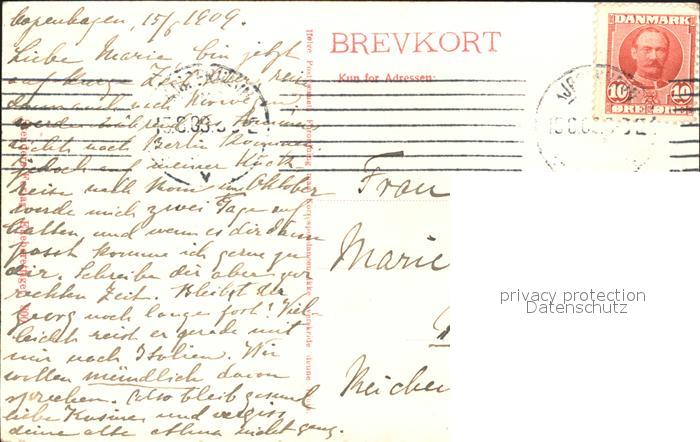 Copenhagen, 15/6 1909.
Liebe Marie bin jetzt
auf kurze Zeit
dann auch nach Norwegen
werde
nicht nach Berlin kommen
jedoch auf meiner
reise nach Rom im Oktober
werde mich zwei Tage auf
halten, und wenn es dir dann
passt komme ich gerne zu
dir. Schreibe dir aber zur
rechten Zeit. Bleibst du
Georg noch lange fort? Viel
leicht reist er gerade mit
mir nach Italien. Wir
wollen mündlich davon
sprechen. Also bleib gesund
liebe Kusine und vergiss
deine alte nicht ganz.
BREVKORT
Kun for Adressen:
DANMARK
10 10
ØRE ØRE
15.6.09.
Frau
Marie
privacy protection
Datenschutz